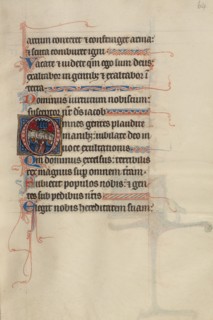 arcum conteret et confringet arma:
et scuta comburet igni
Vacate et videte qm ego sum deus:
exaltabor in gentib; et exaltabor in
terra:
Dominus virtutum nobiscum:
susceptor nr deus iacob
Omnes gentes plaudite
manib; iubilate deo in
voce exultationis
Qm dominus excelsus: terribilis
rex magnus sup omnem terram
Subiecit populos nobis: et gen
tes sub pedibus nris
Elegit nobis hereditatem suam: